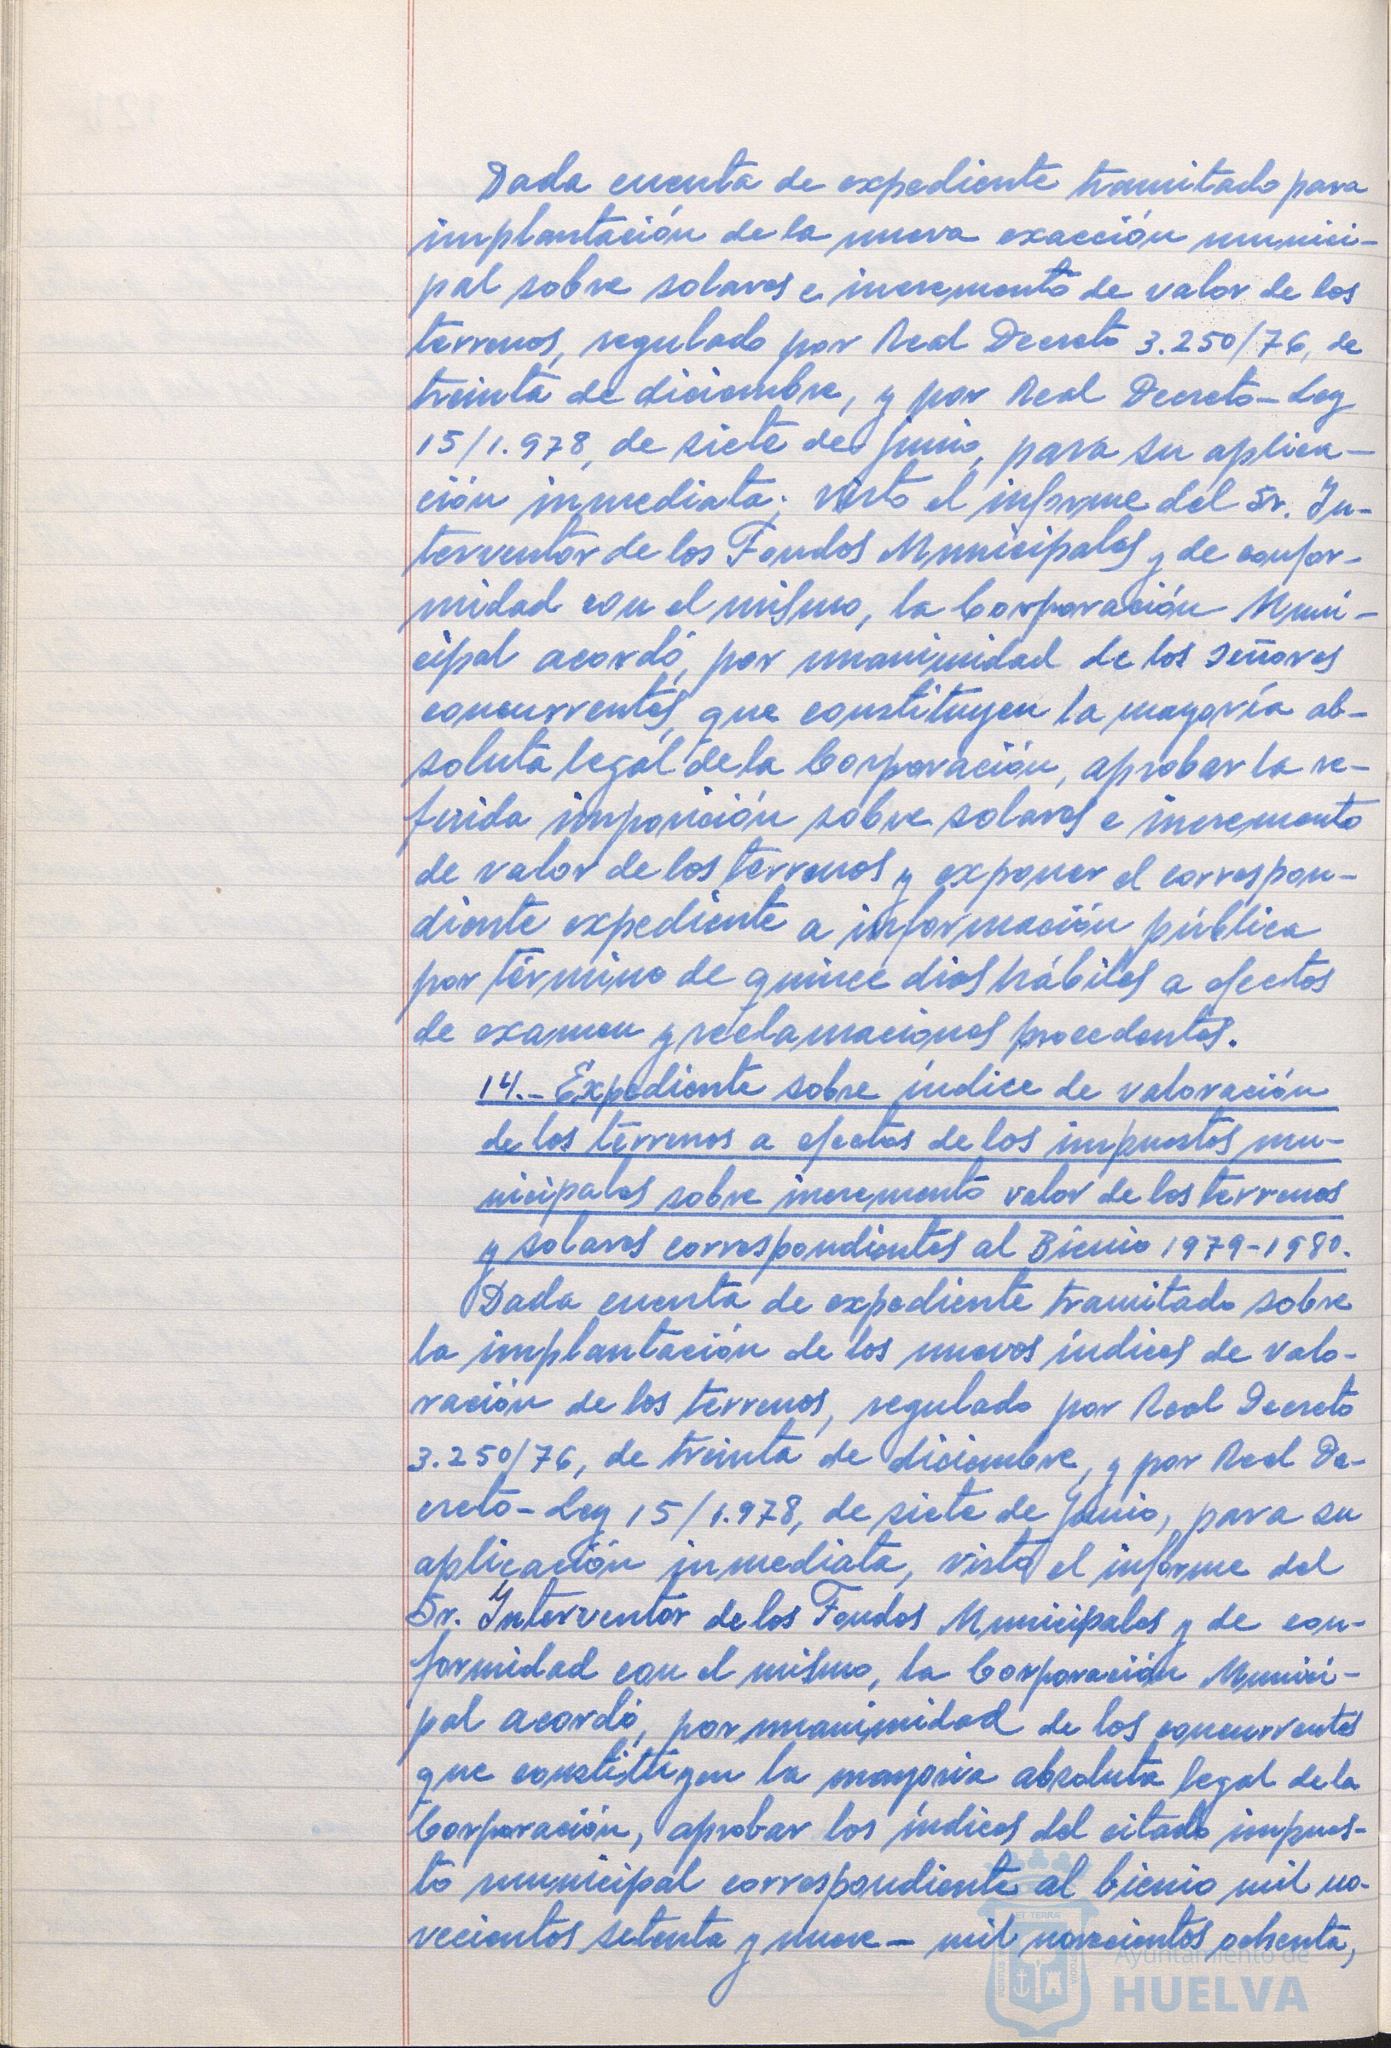 Dada cuenta de expediente tramitado para
implantación de la nueva exacción munici-
pal sobre solares e incremento de valor de los
terrenos, regulado por Real Decreto 3.250/76, de
treinta de diciembre, y por Real Decreto-Ley
15/1.978, de siete de junio, para su aplica-
ción inmediata; visto el informe del Sr. In-
terventor de los Fondos Municipales y de confor-
midad con el mismo, la Corporación Muni-
cipal acordó, por unanimidad de los señores
concurrentes, que constituyen la mayoría ab-
soluta legal de la Corporación, aprobar la re-
ferida imposición sobre solares e incremento
de valor de los terrenos y exponer el correspon-
diente expediente a información pública
por término de quince dias hábiles a efectos
de examen y reclamaciones procedentes.
14.- Expediente sobre índice de valoración
de los terrenos a efectos de los impuestos mu-
nicipales sobre incremento valor de los terrenos
y solares correspondientes al Bienio 1979-1980.
Dada cuenta de expediente tramitado sobre
la implantación de los nuevos índices de valo-
ración de los terrenos, regulado por Real Decreto
3.250/76, de treinta de diciembre, y por Real De-
creto-Ley 15/1.978, de siete de junio, para su
aplicación inmediata, visto el informe del
Sr. Interventor de los Fondos Municipales y de con-
formidad con el mismo, la Corporación Munici-
pal acordó, por unanimidad de los concurrentes
que constituyen la mayoria absoluta legal de la
Corporación, aprobar los índices del citado impues-
to municipal correspondiente al bienio mil no-
vecientos setenta y nueve - mil novecientos ochenta,
ET TERRA
PORTUS
CUSTODIA
Ayuntamiento de
HUELVA